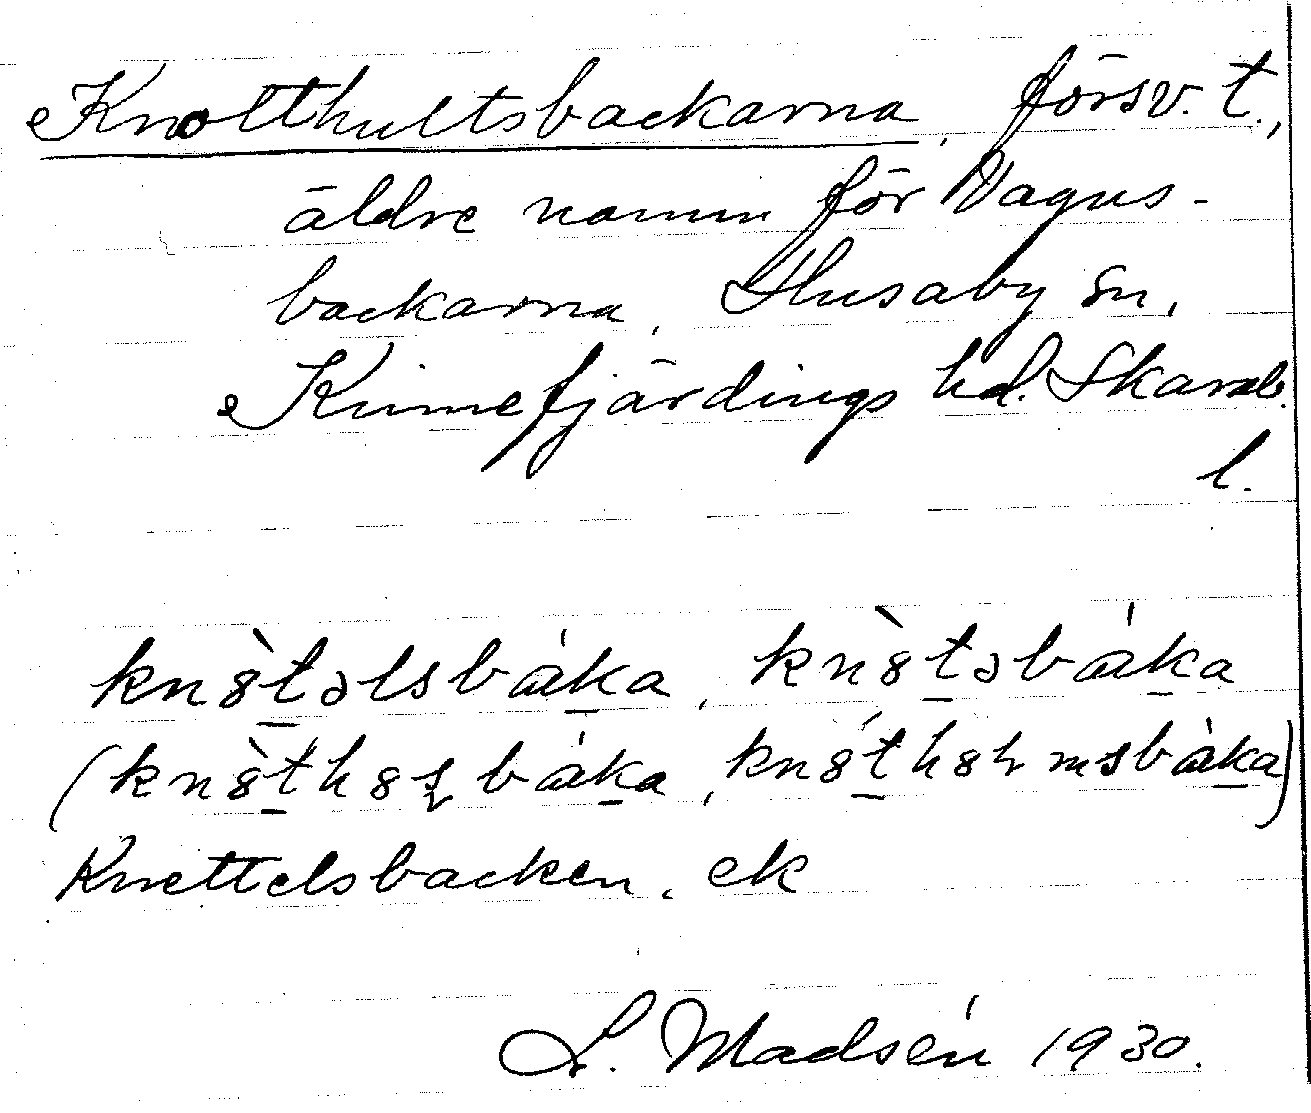 Knotthultsbackarna, försv. t.,
äldre namn för Vagns-
backarna, Husaby sn,
Kinnefjärdings hd. Skarab.
l.
kn8̀t̲əlsbák̲a, kn8̀t̲əbák̲a
(kn8̀t̲h8s̨bák̲a, kn8́t̲h8
Knettelsbacken. ek
L. Madsén 1930.